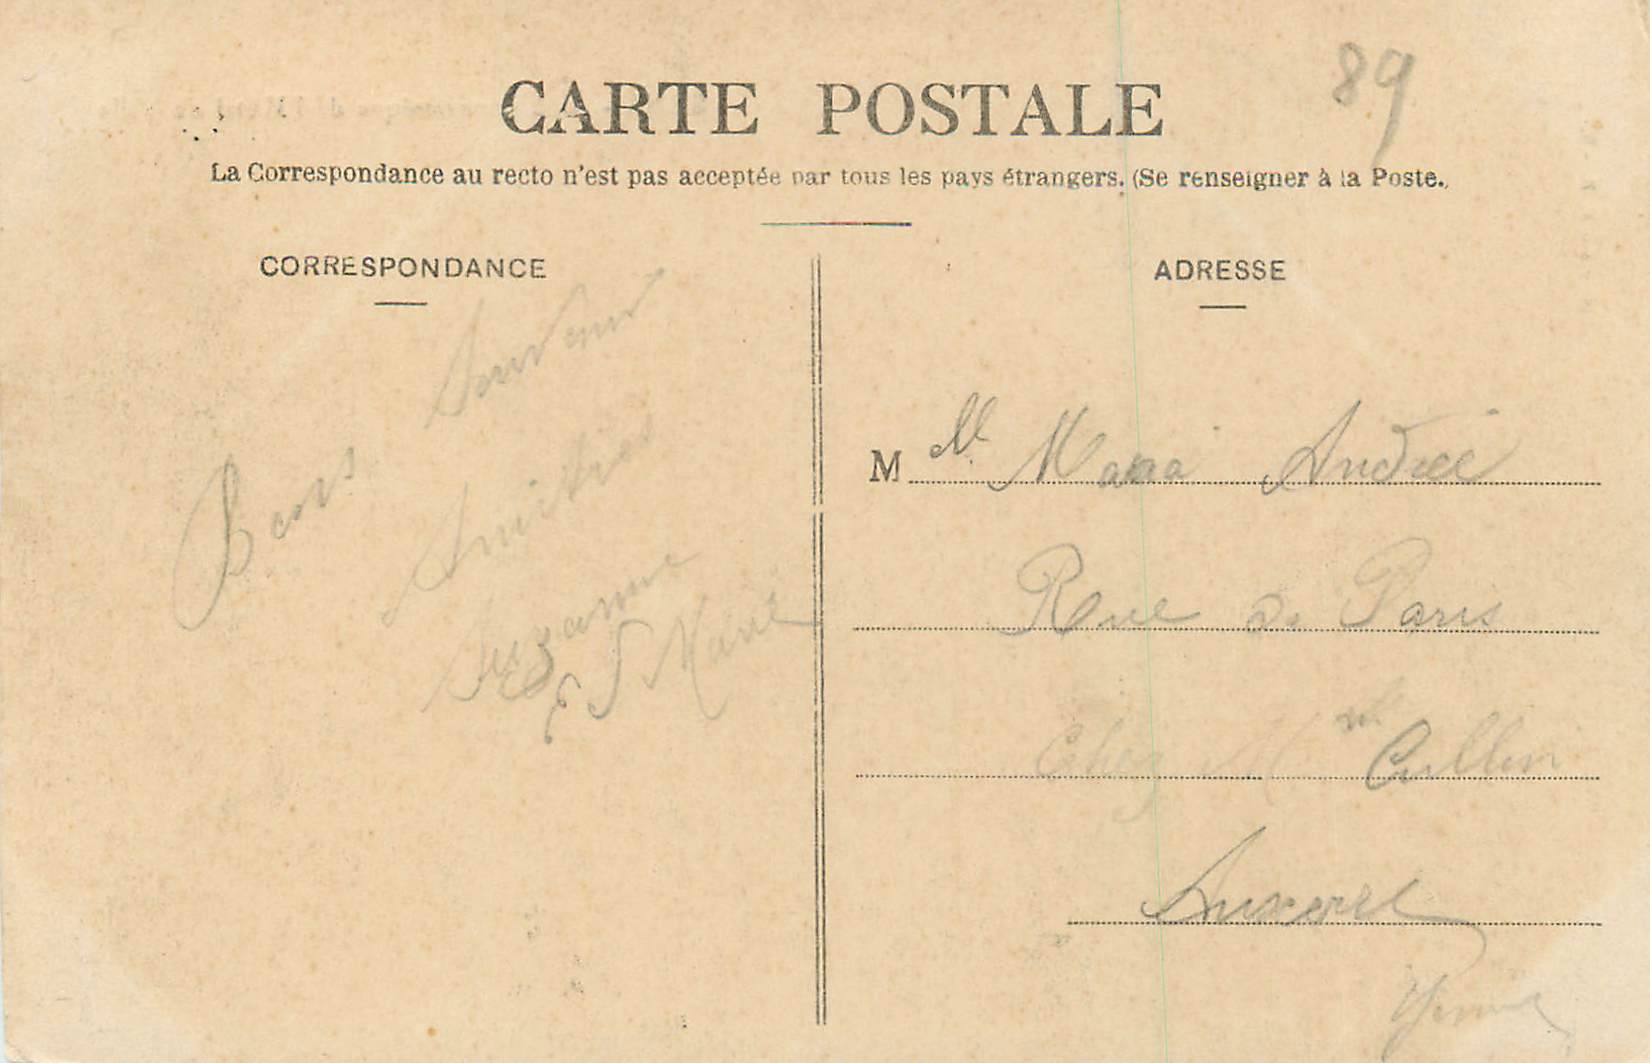 89
CARTE POSTALE
La Correspondance au recto n'est pas acceptée par tous les pays étrangers. (Se renseigner à la Poste.)
CORRESPONDANCE
Bons Souvenir
Amitiés
Suzanne
& Marie
ADRESSE
M lle Maria Andrée
Rue de Paris
Chez M me
Auxerre
Yonne